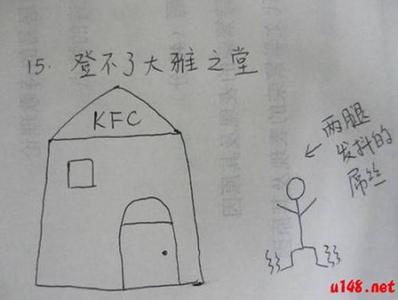 15. 登不了大雅之堂
KFC
两腿
发抖的
屌丝
u148.net